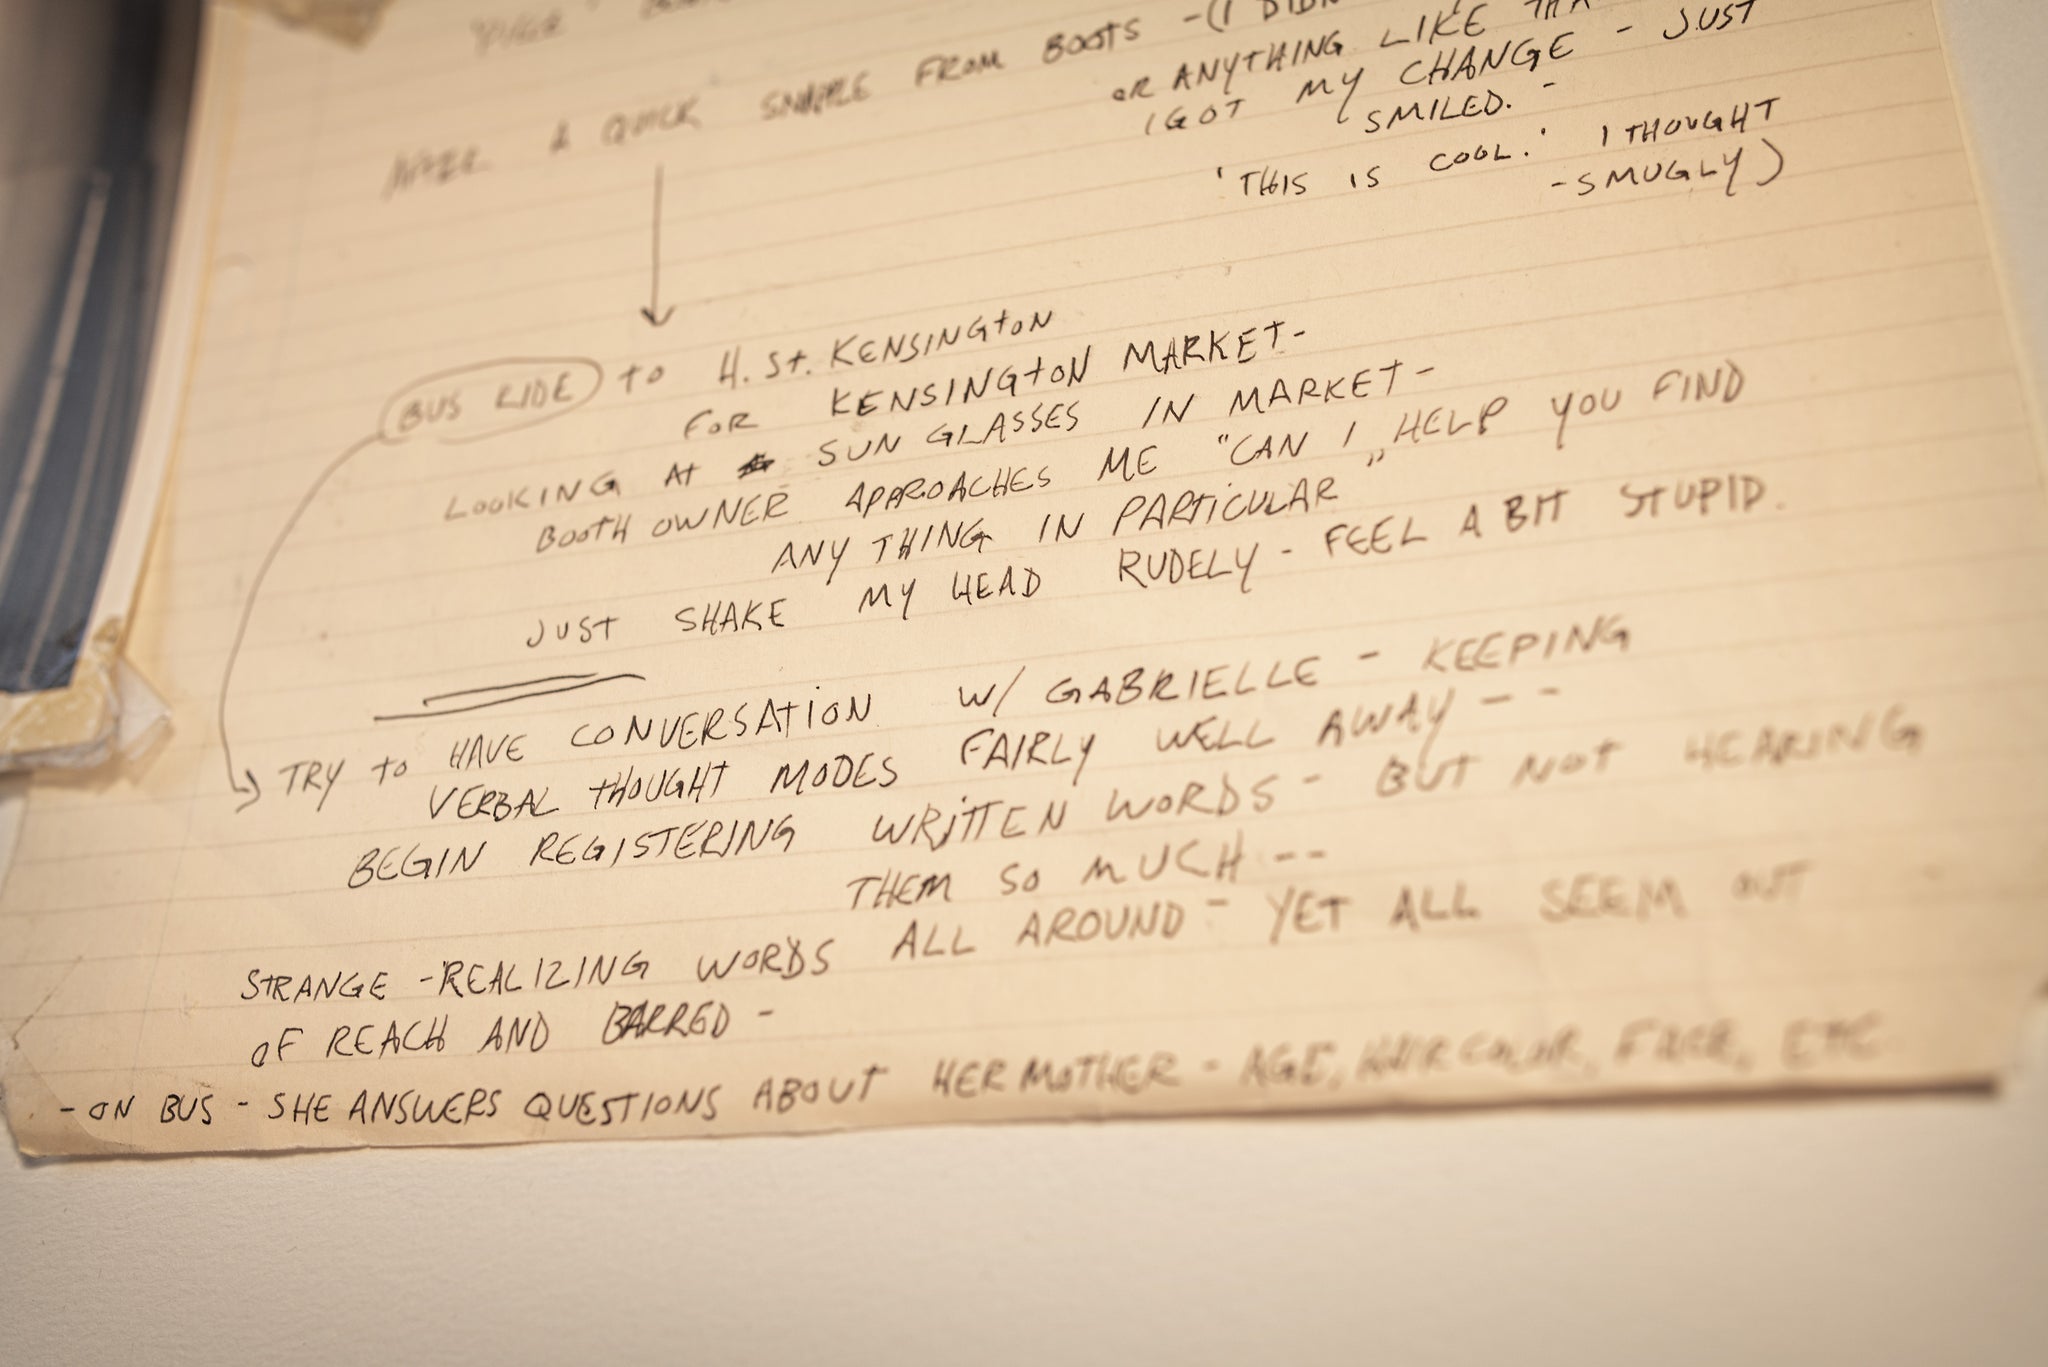 AFTER A QUICK FROM BOOTS - (I
OR ANYTHING LIKE
I GOT MY CHANGE - JUST
SMILED. -
'THIS IS COOL.' I THOUGHT
- SMUGLY)
BUS RIDE to H. St. KENSINGtON
FOR KENSINGtON MARKET -
LOOKING At SUN GLASSES IN MARKET -
BOOtH OWNER APPROACHES ME "CAN I HELP YOU FIND
ANY THING IN PARTICULAR"
JUST SHAKE MY HEAD RUDELY - FEEL A BIT STUPID.
TRY to HAVE CONVERSAtiON W/ GABRIELLE - KEEPING
VERBAL tHOUGHT MODES FAIRLY WELL AWAY - -
BEGIN REGISTERING WRITTEN WORDS - BUT NOT HEARING
THEM SO MUCH - -
STRANGE - REALIZING WORDS ALL AROUND - YET ALL SEEM OUT
OF REACH AND BARRED -
- ON BUS - SHE ANSWERS QUESTIONS ABOUT HER MOTHER - AGE, HAIR COLOR, FACE, ETC